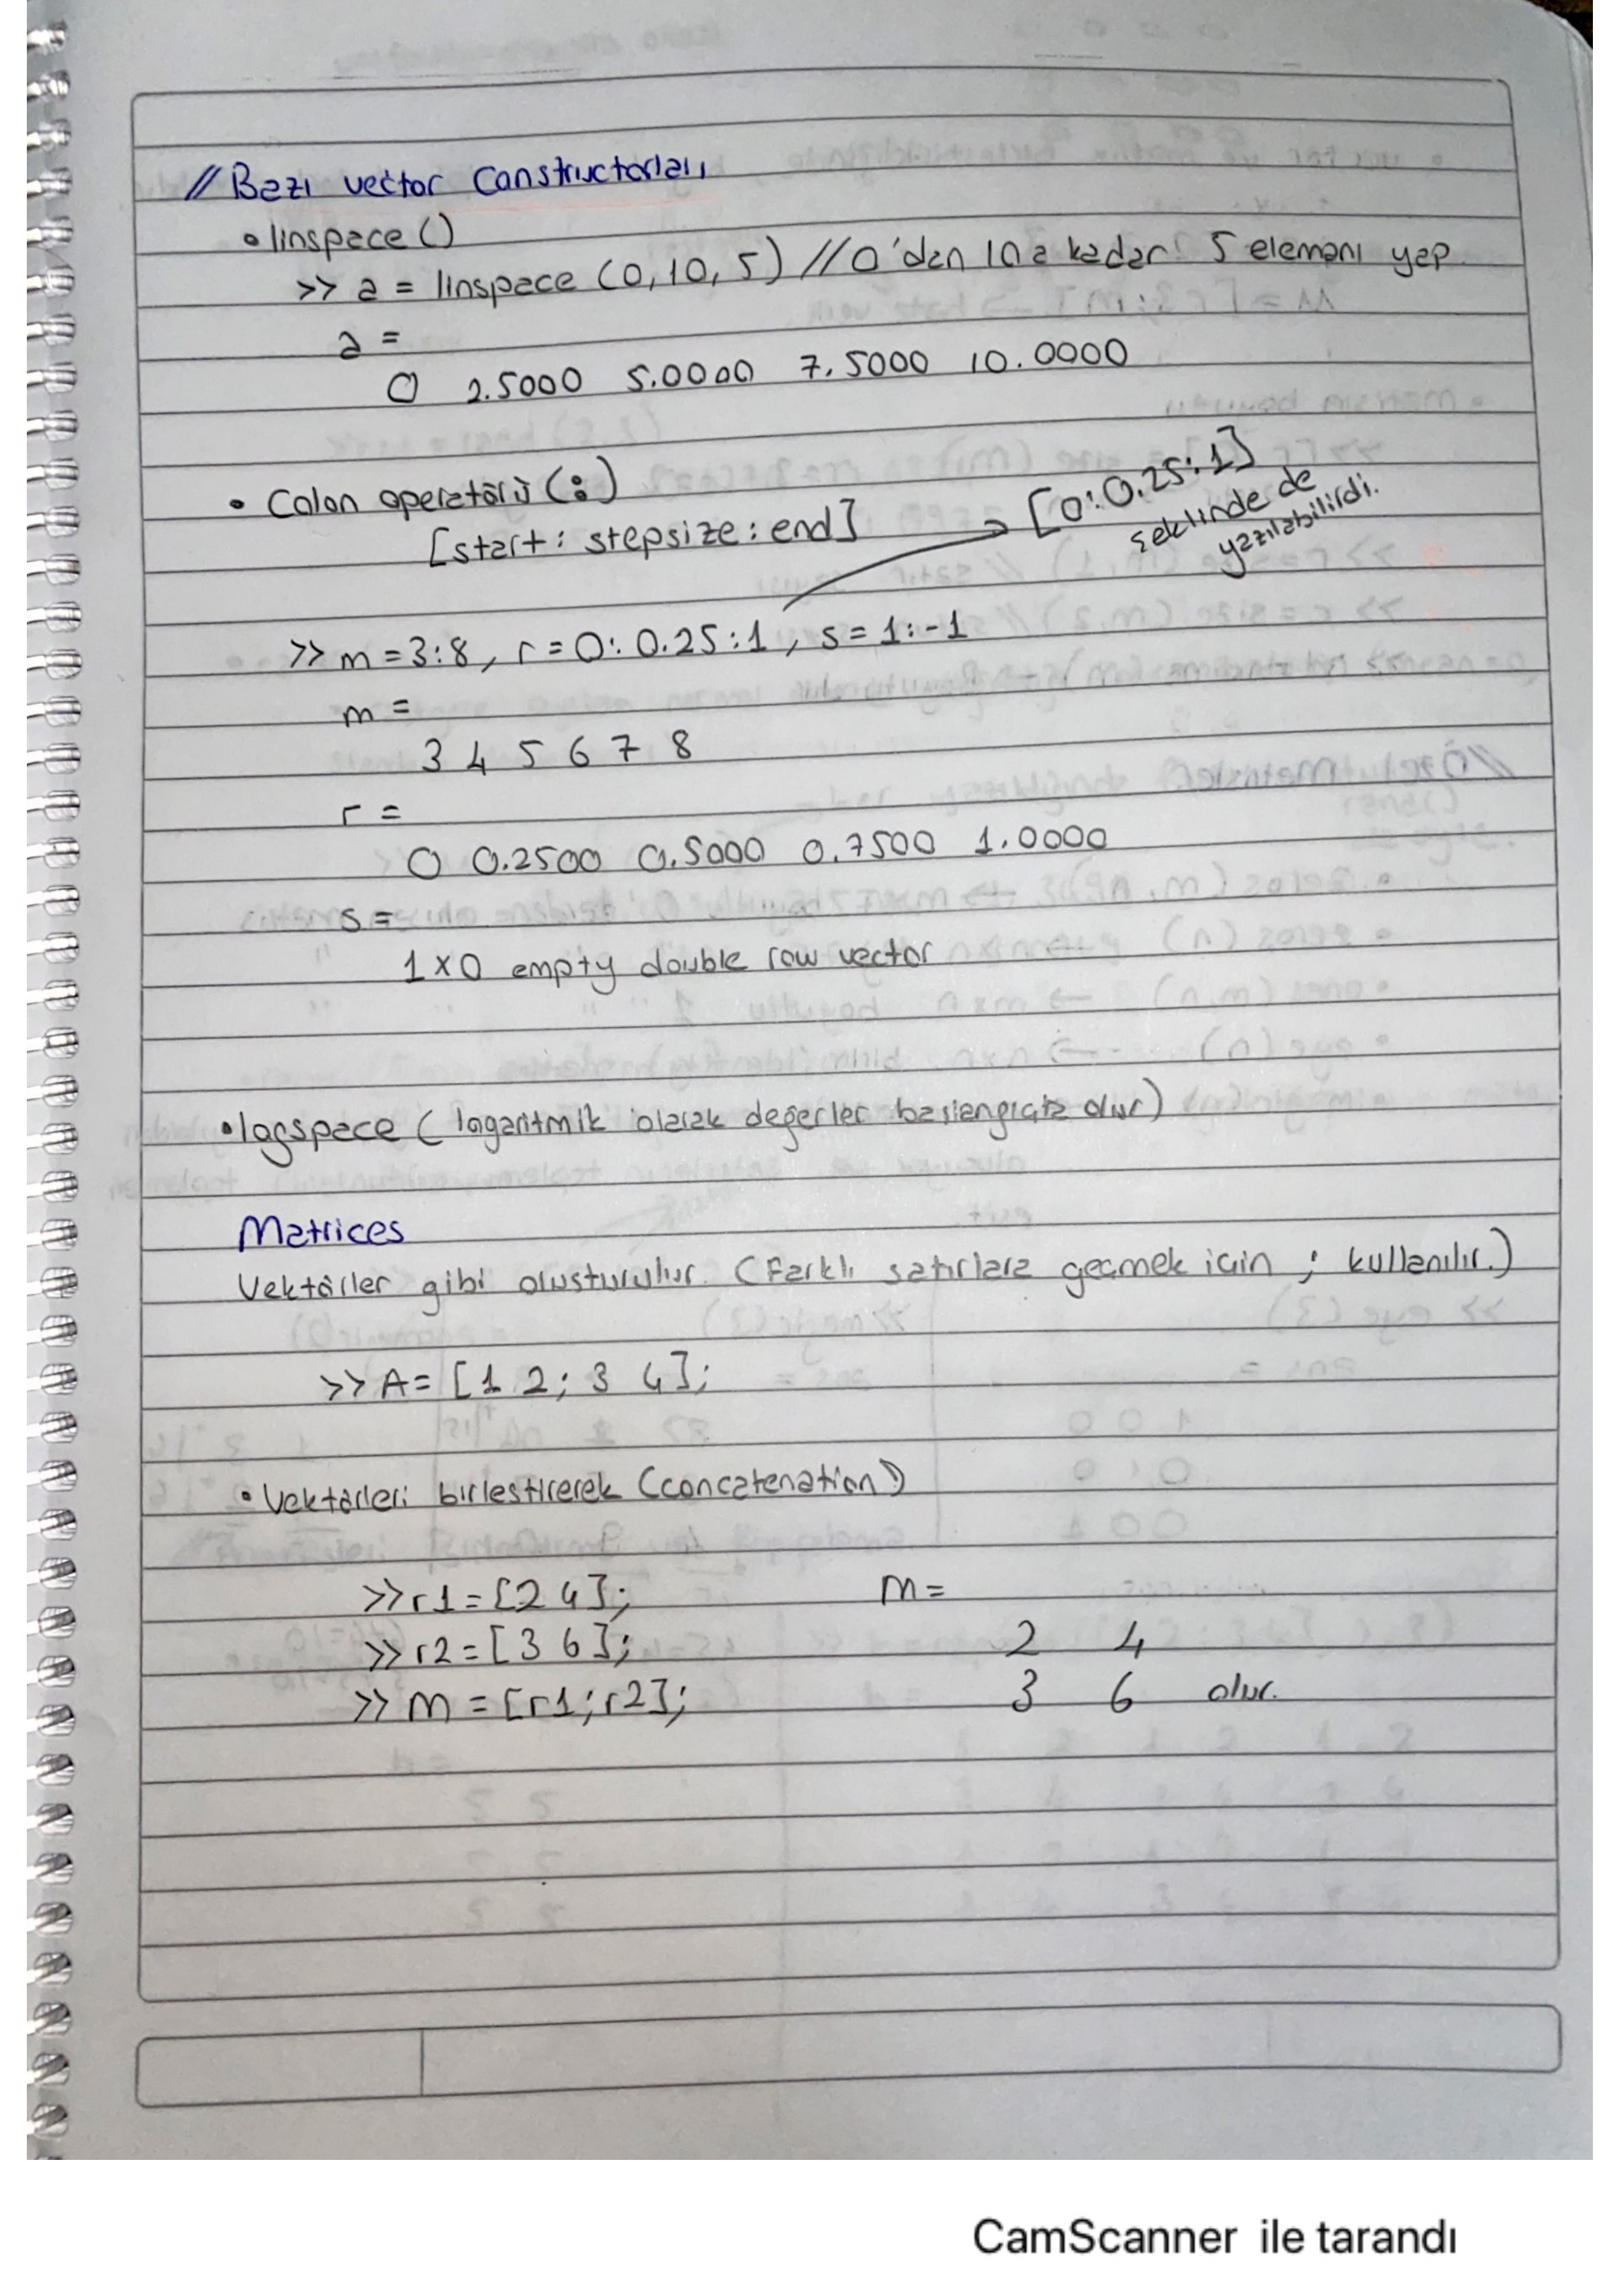 // Bazı vector Constructorları
• linspace ()
>> a = linspace (0, 10, 5) // 0'dan 10a kadar 5 elemanı yap
a =
0 2.5000 5.0000 7.5000 10.0000
• Colon operatörü (:)
[start : stepsize : end]
[0:0.25:1]
şeklinde de
yazılabilirdi.
>> m = 3:8, r = 0:0.25:1, s = 1:-1
m =
3 4 5 6 7 8
r =
0 0.2500 0.5000 0.7500 1.0000
s =
1x0 empty double row vector
• logspace ( logaritmik olarak değerler olur)
Matrices
Vektörler gibi oluşturulur. (Farklı satırlara geçmek için ; kullanılır.)
>> A = [1 2; 3 4];
• Vektörleri birleştirerek (concatenation)
>> r1 = [2 4];
>> r2 = [3 6];
>> m = [r1; r2];
m =
2 4
3 6 olur.
CamScanner ile tarandı